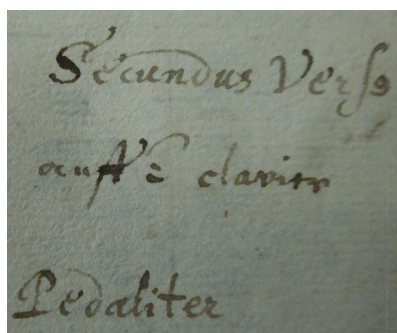 Secundus Versꝰ
auff 2 clavier
Pedaliter